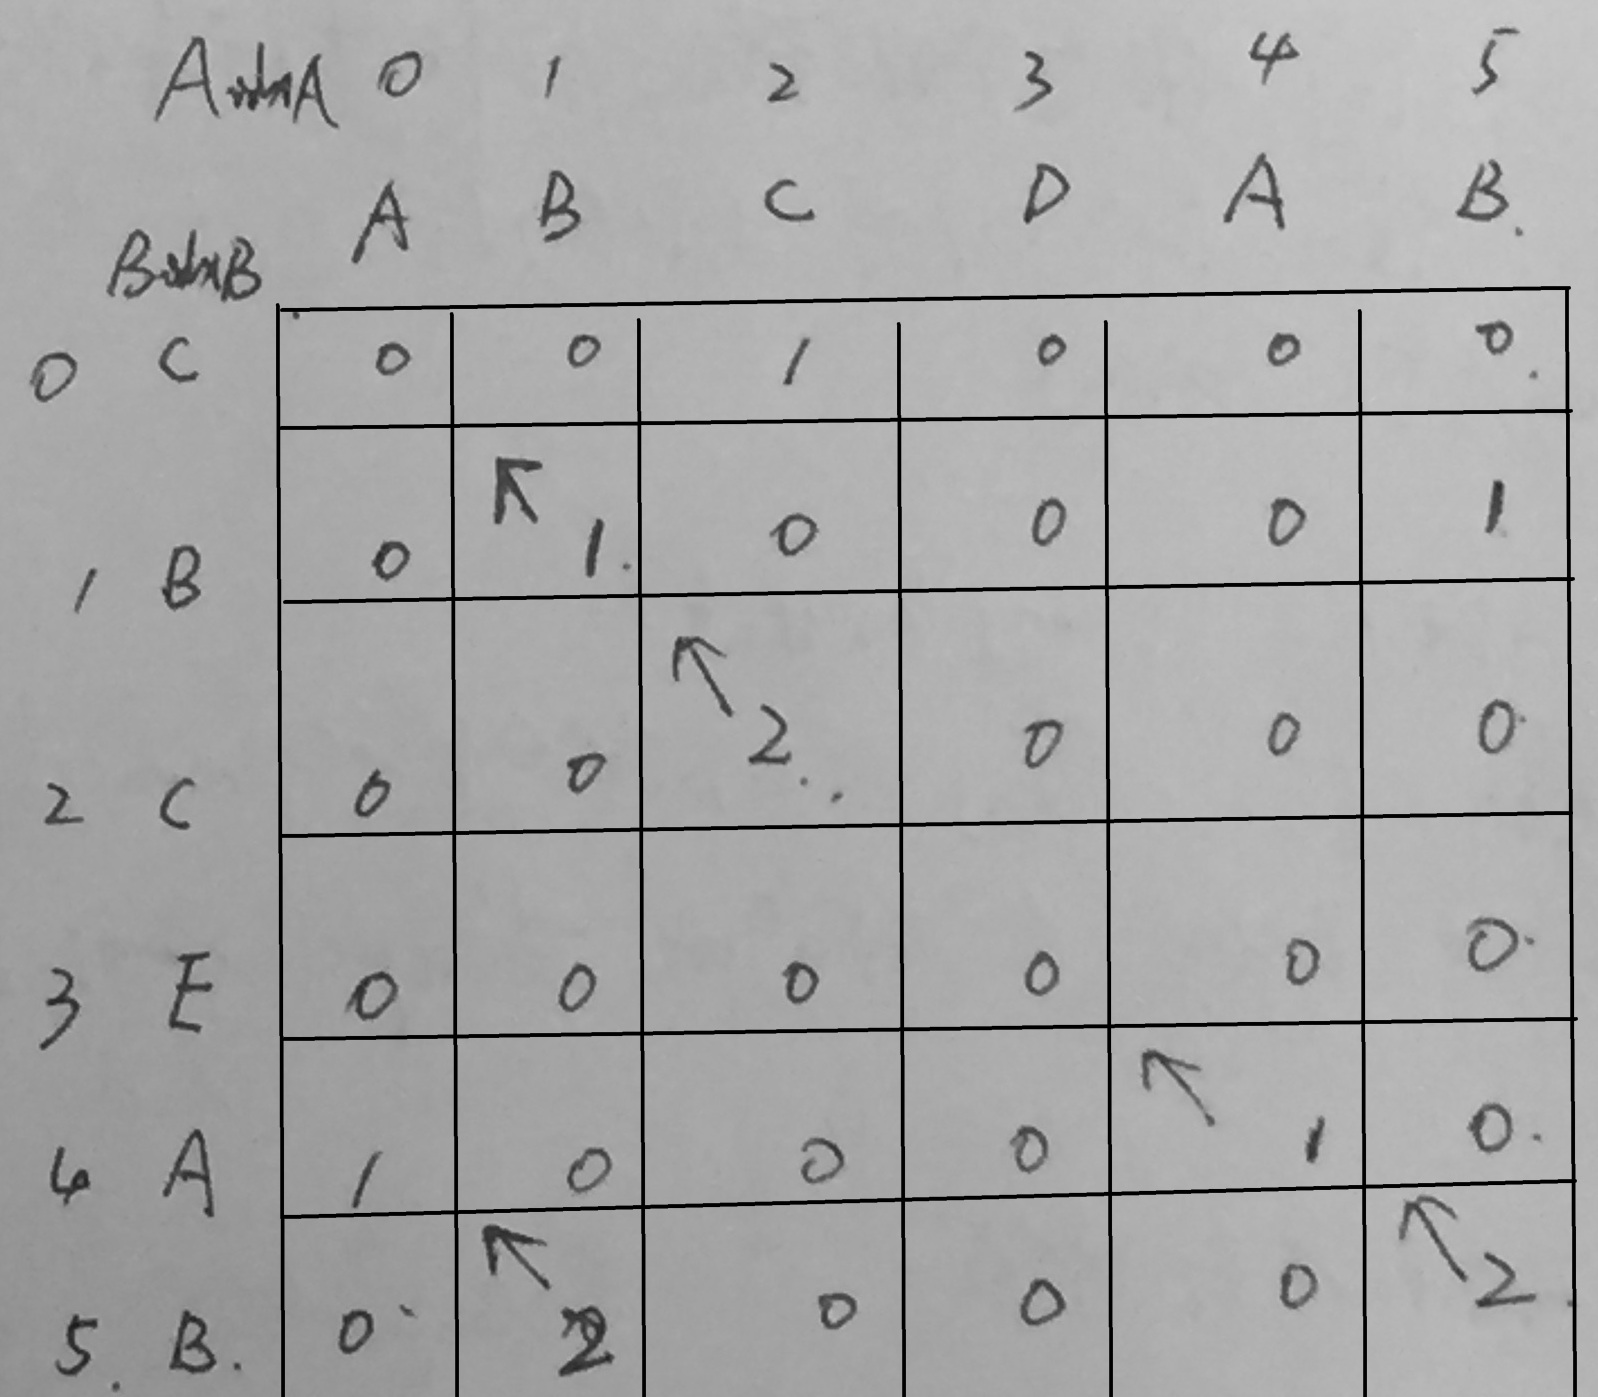 0 1 2 3 4 5
A B C D A B.
0 C 0 0 1 0 0 0.
1 B 0 1. 0 0 0 1
2 C 0 0 2 0 0 0
3 E 0 0 0 0 0 0
4 A 1 0 0 0 1 0.
5. B. 0 2 0 0 0 2